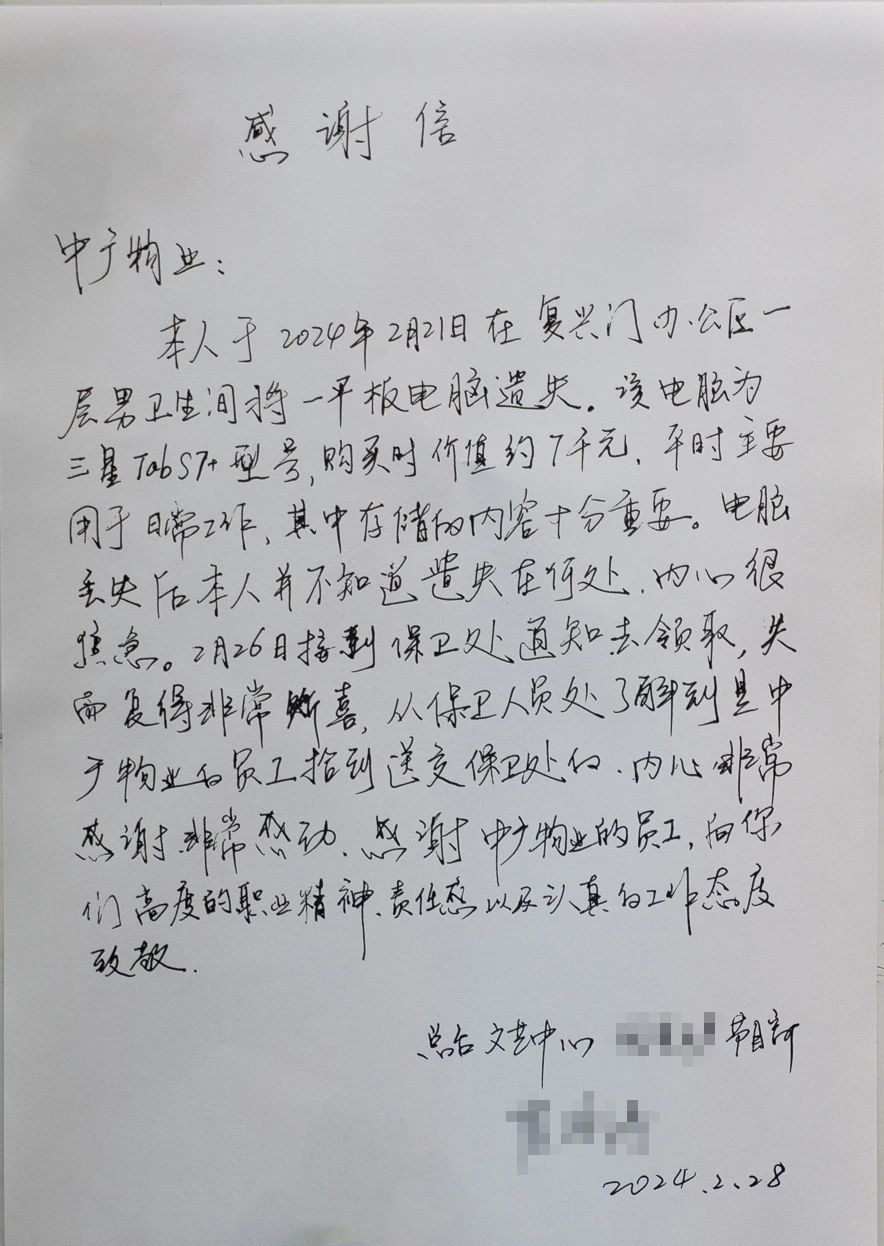 感谢信
中广物业：
本人于2024年2月21日在复兴门办公区一
层男卫生间将一平板电脑遗失。该电脑为
三星TabS7+型号，购买时价值约7千元，平时主要
用于日常工作，其中存储的内容十分重要。电脑
丢失后本人并不知道遗失在何处，内心很
焦急。2月26日接到保卫处通知去领取，失
而复得非常欣喜，从保卫人员处了解到是中
广物业的员工拾到送交保卫处的，内心非常
感谢非常感动，感谢中广物业的员工，向你
们高度的职业精神、责任感以及认真的工作态度
致敬.
总台文艺中心 节目部
2024.2.28